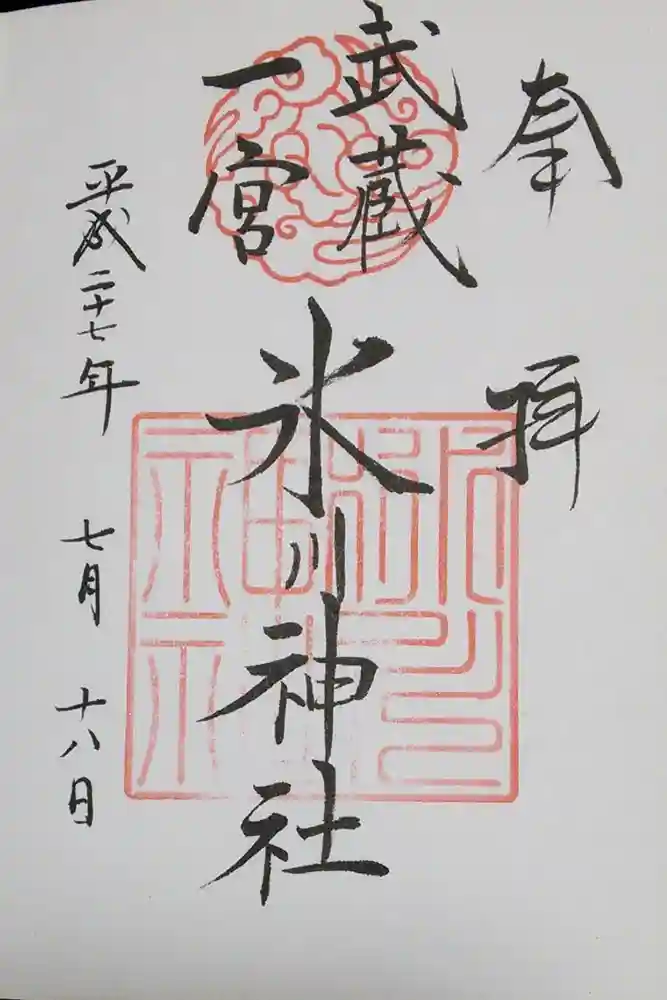 奉拝
武蔵
一宮
氷川神社
平成二十七年 七月 十八日